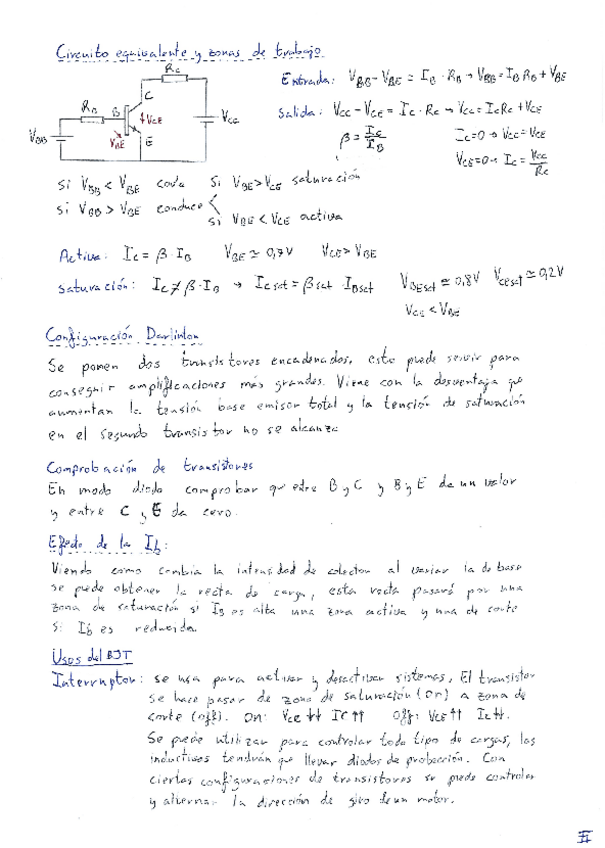 Circuito equivalente y zonas de trabajo
Entrada: VBB - VBE = IB · RB → VBB = IB RB + VBE
Salida: VCC - VCE = IC · RC → VCC = IC RC + VCE
β = IC/IB
IC=0 → VCC = VCE
VCE=0 → IC = VCC/RC
RC
RB
B
C
E
VCE
VBE
VCC
VBB
Si VBB < VBE corta Si VBE > VCE saturación
Si VBB > VBE conduce
Si VBE < VCE activa
Activa: IC = β · IB VBE ≃ 0,7V VCE > VBE
Saturación: IC ≠ β · IB → ICsat = βsat · IBsat VBEsat ≃ 0,8V VCEsat ≃ 0,2V
VCE < VBE
Configuración Darlinton
Se ponen dos transistores encadenados, esto puede servir para
conseguir amplificaciones más grandes. Viene con la desventaja que
aumentan la tensión base emisor total y la tensión de saturación
en el segundo transistor no se alcanza
Comprobación de transistores
En modo diodo comprobar que entre B y C y B y E de un valor
y entre C y E da cero.
Efecto de la Ib:
Viendo como cambia la intensidad de colector al variar la de base
se puede obtener la recta de carga, esta recta pasará por una
zona de saturación si IB es alta una zona activa y una de corte
si Ib es reducida.
Usos del BJT
Interruptor: se usa para activar y desactivar sistemas, El transistor
se hace pasar de zona de saturación (on) a zona de
corte (off). On: VCE ↓↓ IC ↑↑ Off: VCE ↑↑ IC ↓↓.
Se puede utilizar para controlar todo tipo de cargas, las
inductivas tendrán que llevar diodos de protección. Con
ciertas configuraciones de transistores se puede controlar
y alternar la dirección de giro de un motor.
II